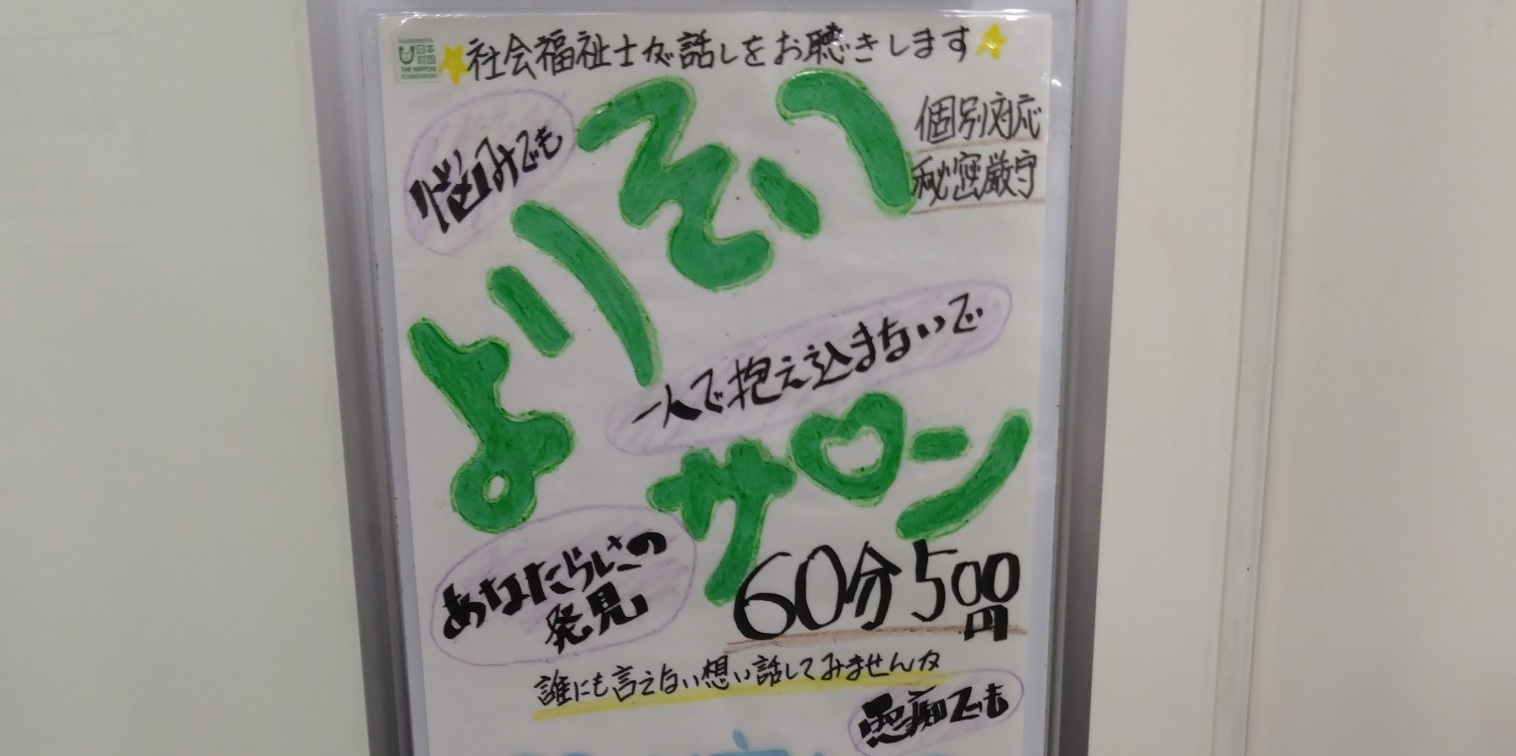 社会福祉士が話しをお聴きします
悩みでも
よりそい
個別対応
秘密厳守
一人で抱え込まないで
サロン
あなたらしさの
発見
60分500円
誰にも言えない想い話してみませんか
愚痴でも
日本
財団
THE NIPPON
FOUNDATION